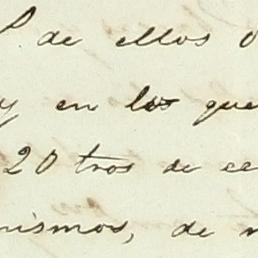 de ellos
y en los que
20 tros de
mismos, de